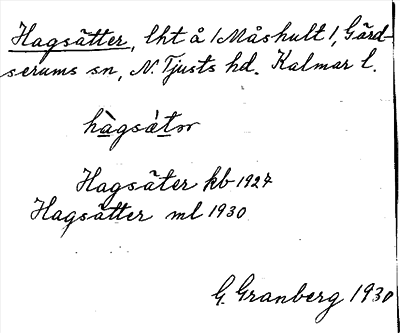 Hagsätter, lht å /Måshult/, Gärd-
serums sn, N. Tjusts hd. Kalmar l.
hàgsètər
Hagsäter kb 1927
Hagsätter ml 1930
G. Granberg 1930